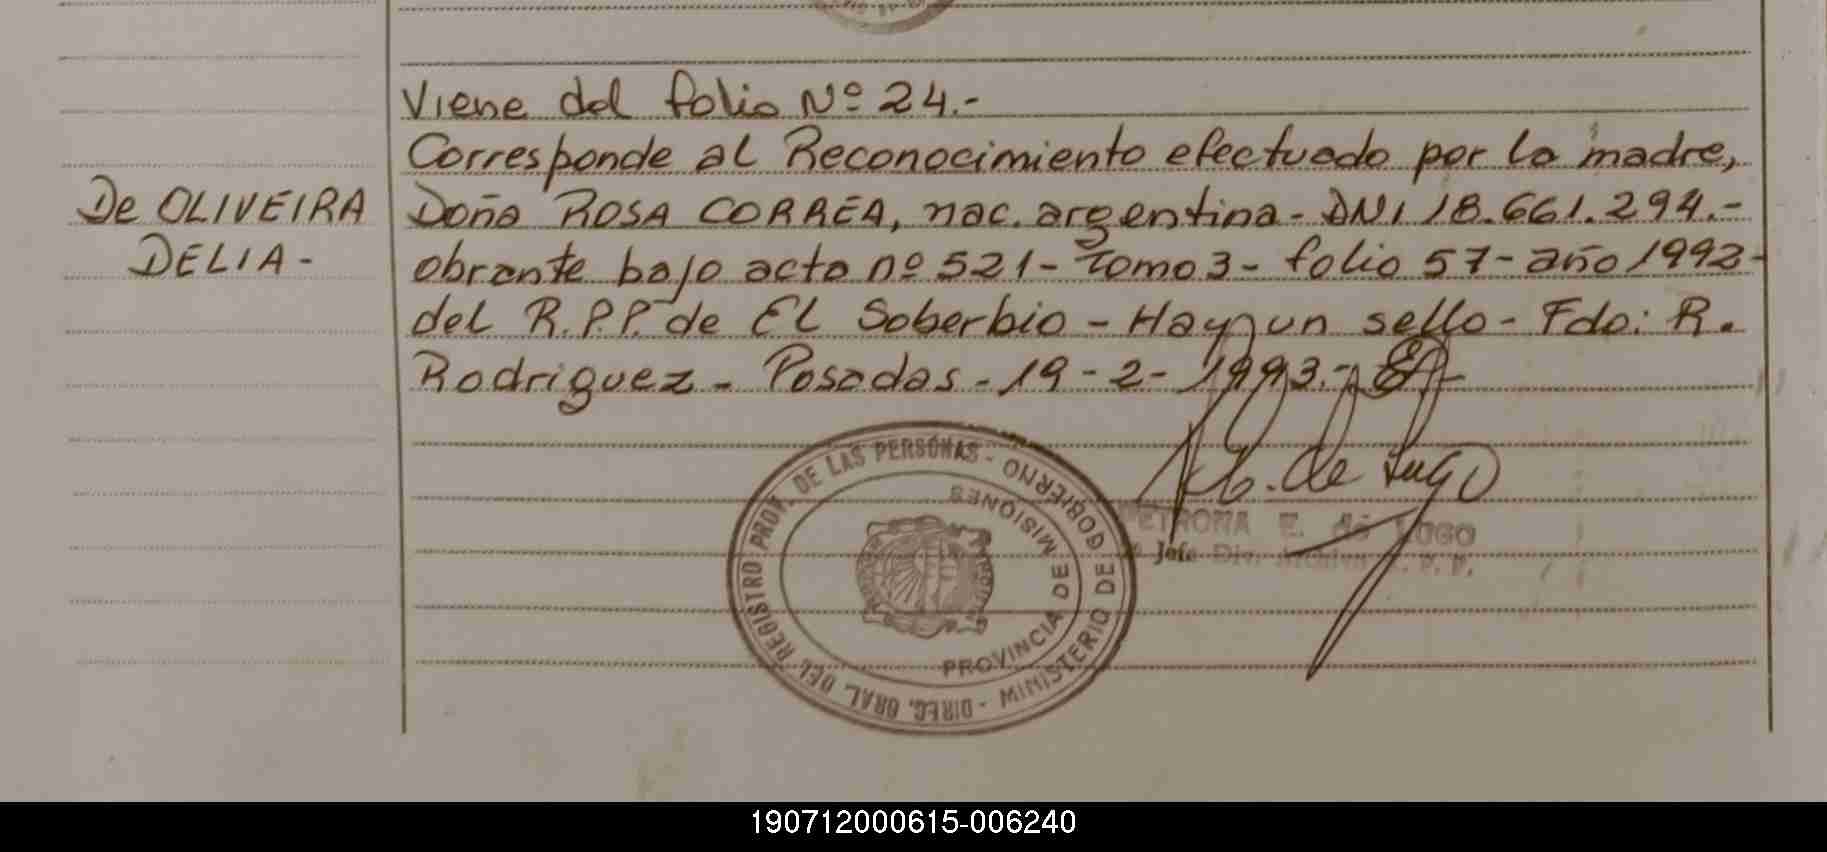 Viene del folio Nº 24.-
Corresponde al Reconocimiento efectuado por la madre,
De OLIVEIRA
DELIA-
Doña ROSA CORREA, nac. argentina- DNI 18.661.294.-
obrante bajo acta nº 521- Tomo 3- folio 57- año 1992-
del R.P.P. de El Soberbio - Hay un sello - Fdo: R.
Rodriguez - Posadas - 19 - 2 - 1993.-
de Lugo
PETRONA E. de LUGO
Jefe Div. Archivo R. P. P.
DIREC. GRAL. DEL REGISTRO PROV. DE LAS PERSONAS - MINISTERIO DE GOBIERNO -
PROVINCIA DE MISIONES
190712000615-006240